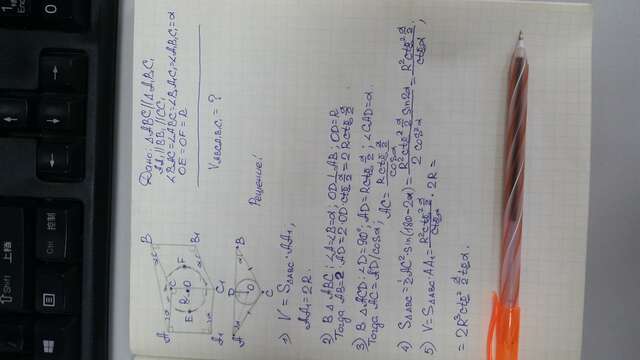 ⇧Shift 上档
Ctrl 控制
Дано: ΔABC // ΔA₁B₁C₁
AA₁ // BB₁ // CC₁
∠BAC = ∠ABC = ∠B₁A₁C₁ = ∠A₁B₁C₁ = α
OE = OF = R
V ABCA₁B₁C₁ = ?
A B C E R O F A₁ B₁ C₁
A D B O C
Решение:
1) V = S△ABC · AA₁,
AA₁ = 2R.
2) В Δ ABC: ∠A = ∠B = α; OD ⊥ AB; OD = R
Тогда AB = 2 AD = 2 · OD · ctg α/2 = 2 R ctg α/2
3) В Δ ACD: ∠D = 90°; AD = R ctg α/2; ∠CAD = α.
Тогда AC = AD/cos α; AC = R ctg α/2 / cos α
4) S△ABC = 1/2 AC² · sin(180 - 2α) = R² ctg² α/2 sin 2α / 2 cos² α = R² ctg² α/2 / ctg α;
5) V = S△ABC · AA₁ = R² ctg² α/2 / ctg α · 2R =
= 2R³ ctg² α/2 tg α.